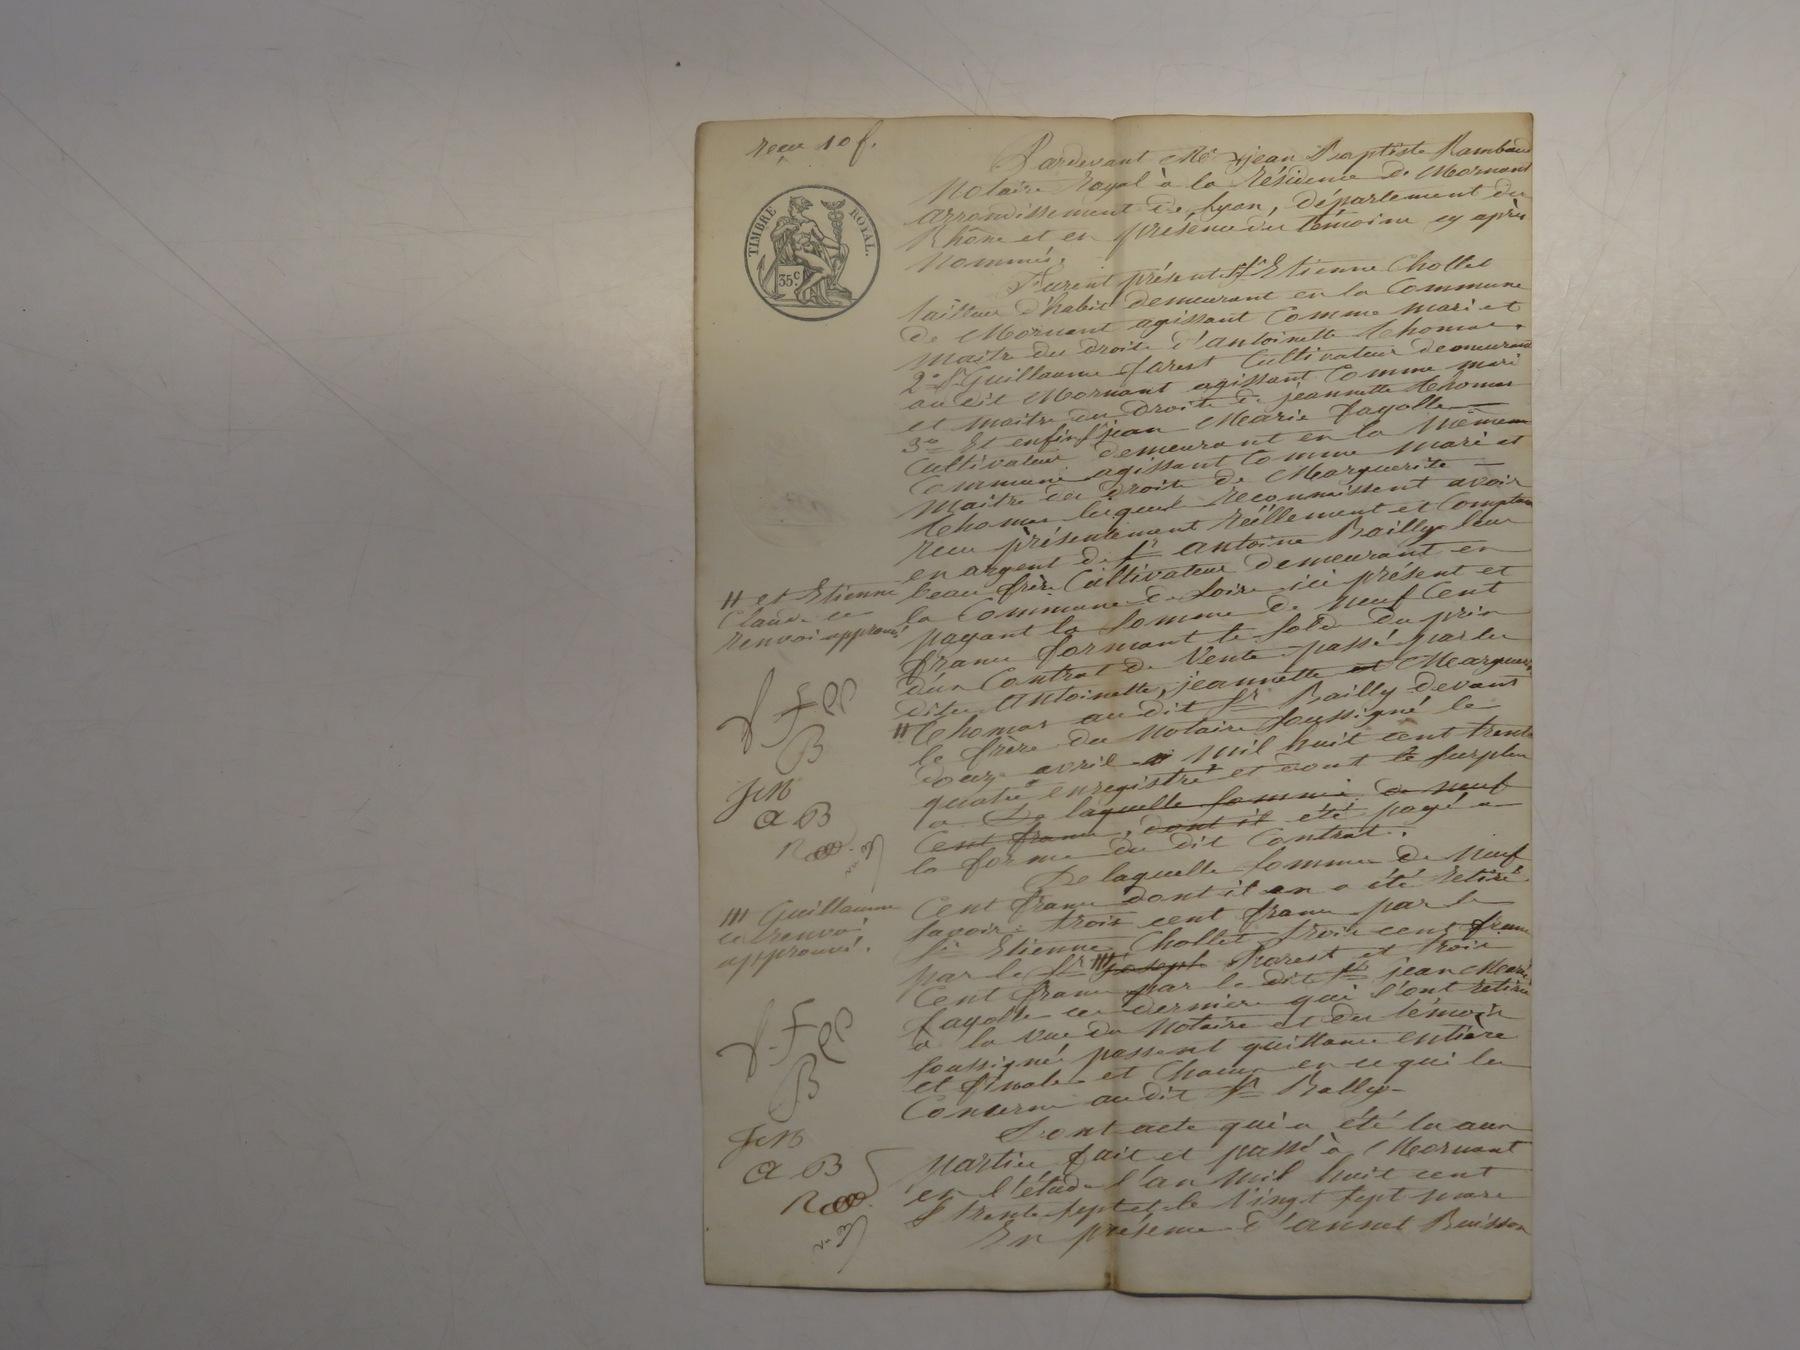 reçu 10 f.
TIMBRE ROYAL.
35 c.
Pardevant Me jean Baptiste Rambaud
Notaire Royal à la résidence de Mornant
arrondissement de Lyon, département du
Rhône et en présence des témoins cy après
nommés.
Furent présents 1° Sr Etienne Chollet
tailleur d'habit demeurant en la Commune
de Mornant agissant Comme mari et
maitre des droits d'antoinette thomas.
2° Sr Guillaume farest Cultivateur demeurant
au dit Mornant agissant Comme mari
et maitre des droits de jeannette thomas
3° Et enfin Sr jean Marie fayolle
Cultivateur demeurant en la même
Commune agissant Comme mari et
maitre des droits de Marguerite
thomas lesquels reconnaissent avoir
reçu présentement réellement et Comptant
en argent de Sr antoine Bailly leur
beau frère Cultivateur demeurant en
la Commune de Loire ici présent et
payant la somme de neuf Cent
francs formant le solde du prix
d'un Contrat de Vente passé par les
dites antoinette, jeannette et Marguerite
# thomas au dit Sr Bailly devant
le frère du Notaire soussigné le
douze avril mil huit cent trente
quatre enregistré et dont le surplus
a De laquelle somme de neuf
Cent francs, dont il été payé a
la forme du dit Contrat.
De laquelle somme de neuf
Cent francs dont il en a été retiré
savoir: trois cent francs par le
Sr Etienne Chollet trois cent francs
par le Sr ⧻ joseph farest et trois
Cent francs par le dit Sr jean Marie
fayolle ces derniers qui l'ont retiré
a la vue du Notaire et des témoins
soussignés passent quittance entière
et finale et chacun en ce qui les
Concerne au dit Sr Bally
Dont acte qui a été lu aux
parties fait et passé à Mornant
en l'étude l'an mil huit cent
trente sept et le vingt sept mars
En présence d'annet Buisson
# et Etienne
Claude ce
renvoi approuvé
B
JcB
a B
⧻ Guillaume
ce renvoi
approuvé.
B
JcB
a B